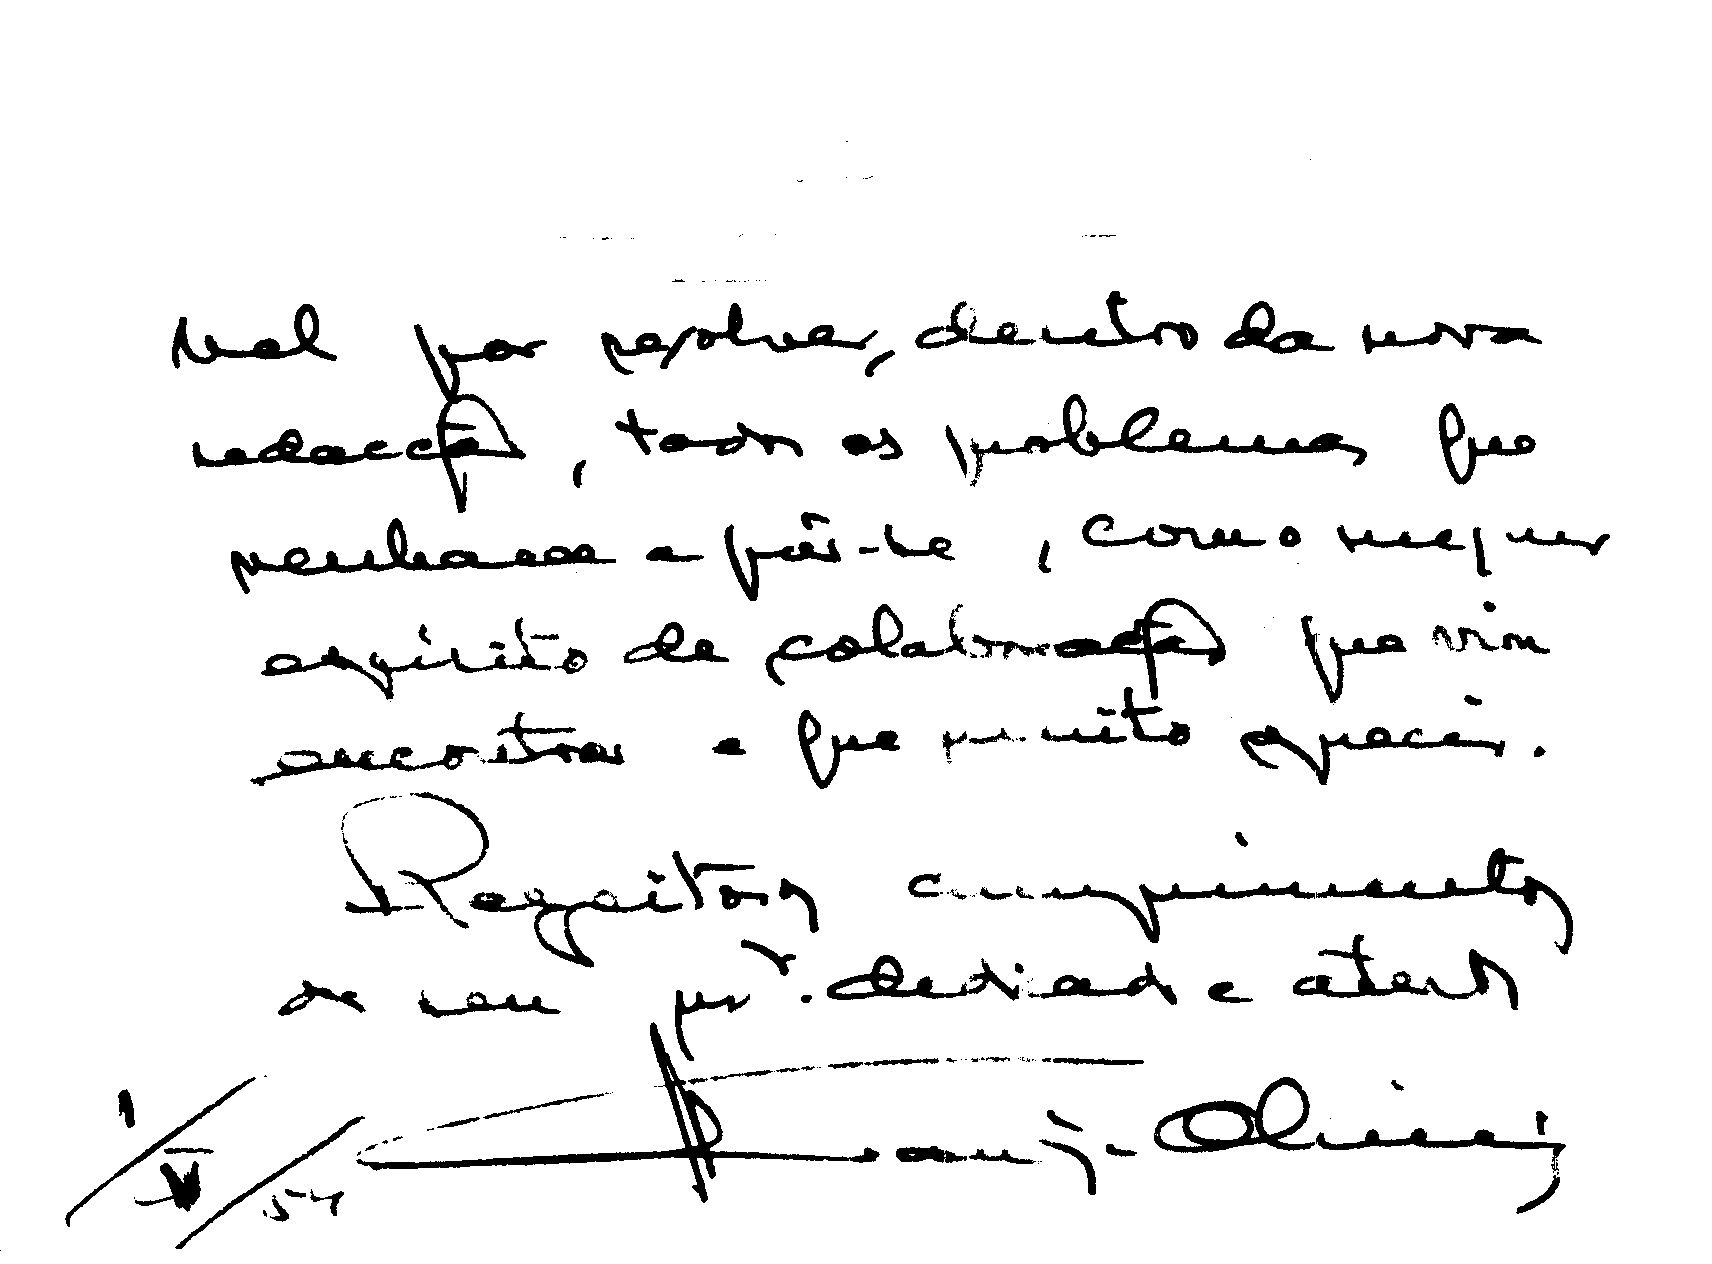 por resolver, dentro da nova
redacção, todos os problemas que
venham a pôr-se, com o mesmo
espirito de colaboração que vim
encontrar e que muito apreciei.
Respeitosos cumprimentos
do seu mtº. dedicado e atento
Oliveira
1/V/54